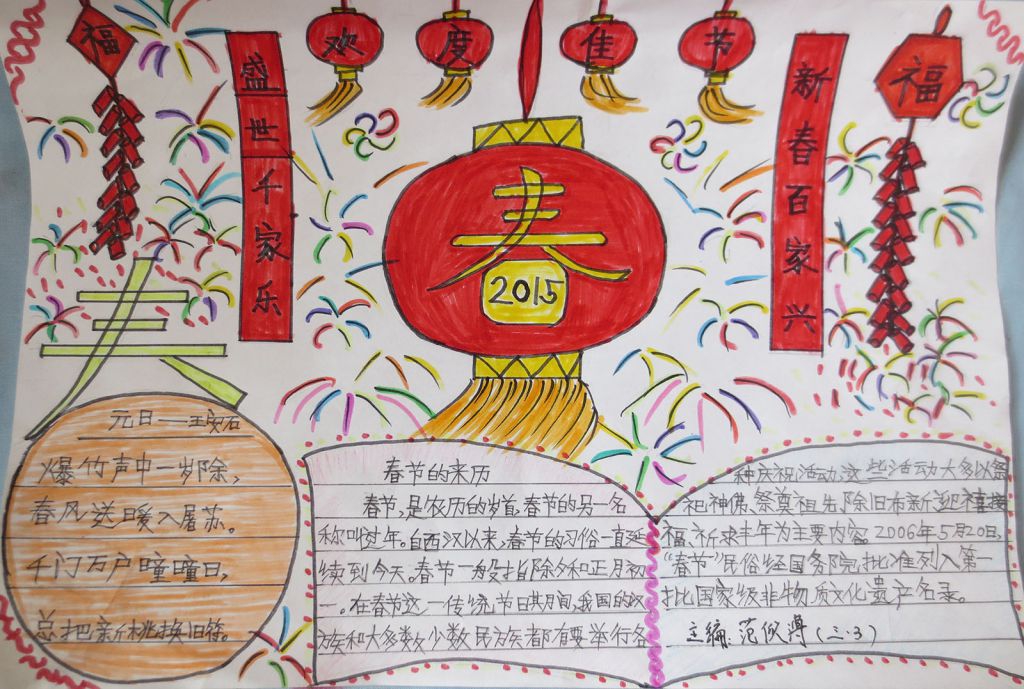 福
欢度佳节
福
盛世千家乐
新春百家兴
春
2015
春
元日——王安石
爆竹声中一岁除,
春风送暖入屠苏。
千门万户曈曈日,
总把新桃换旧符。
春节的来历
春节,是农历的岁首,春节的另一名
称叫过年。自西汉以来,春节的习俗一直延
续到今天。春节一般指除夕和正月初
一。在春节这一传统节日其月间,我国的汉
族和大多数少数民族都有要举行各
种庆祝活动,这些活动大多以祭
祀神佛、祭奠祖先、除旧布新、迎禧接
福、祈求丰年为主要内容。2006年5月20日,
“春节”民俗经国务院批准列入第一
批国家级非物质文化遗产名录。
主编:范(三·3)